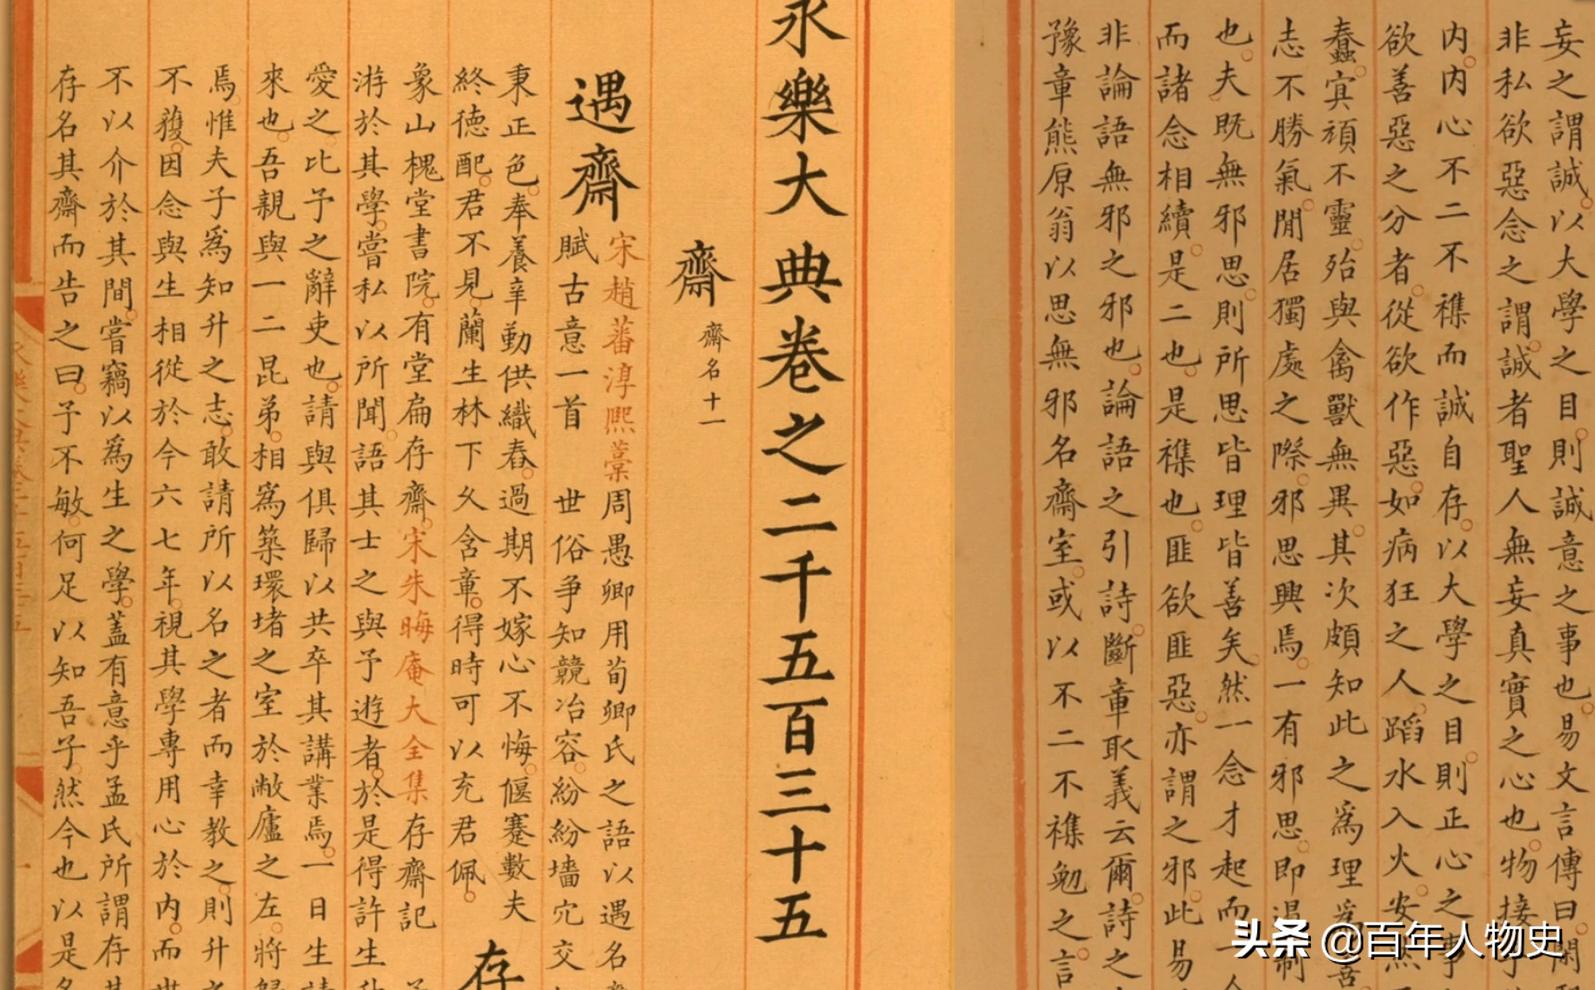 妄之謂誠以大學之目則誠意之事也易文言傳曰閑
非私欲惡念之謂誠者聖人無妄真實之心也物接乎
内内心不二不襍而誠自存以大學之目則正心之事
欲善惡之分者從欲作惡如病狂之人蹈水入火安然
蠢冥頑不靈殆與禽獸無異其次頗知此之為理
志不勝氣閒居獨處之際邪思興焉一有邪思即遏制
也夫既無邪思則所思皆理皆善矣然一念才起而一
而諸念相續是二也是襍也匪欲匪惡亦謂之邪此易
非論語無邪之邪也論語之引詩斷章取義云爾詩之
豫章熊原翁以思無邪名齋室或以不二不襍勉之言
永樂大典卷之二千五百三十五
齋 齋名十一
遇齋
宋趙蕃淳熙藁周愚卿用荀卿氏之語以遇名
賦古意一首 世俗争知競冶容紛紛墻宂交
秉正色奉養辛勤供織舂過期不嫁心不悔偃蹇數夫
終德配君不見蘭生林下久含章得時可以充君佩
存
象山槐堂書院有堂扁存齋宋朱晦庵大全集存齋記
游於其學嘗私以所聞語其士之與予遊者於是得許生
愛之比予之辭吏也請與俱歸以共卒其講業焉一日生請
來也吾親與一二昆弟相爲築環堵之室於敝廬之左將歸
焉惟夫子爲知升之志敢請所以名之者而幸教之則升之
不穫因念與生相從於今六七年視其學專用心於内而世
不以介於其間嘗竊以爲生之學蓋有意乎孟氏所謂存其
存名其齋而告之曰予不敏何足以知吾子然今也以是名
头条 @百年人物史